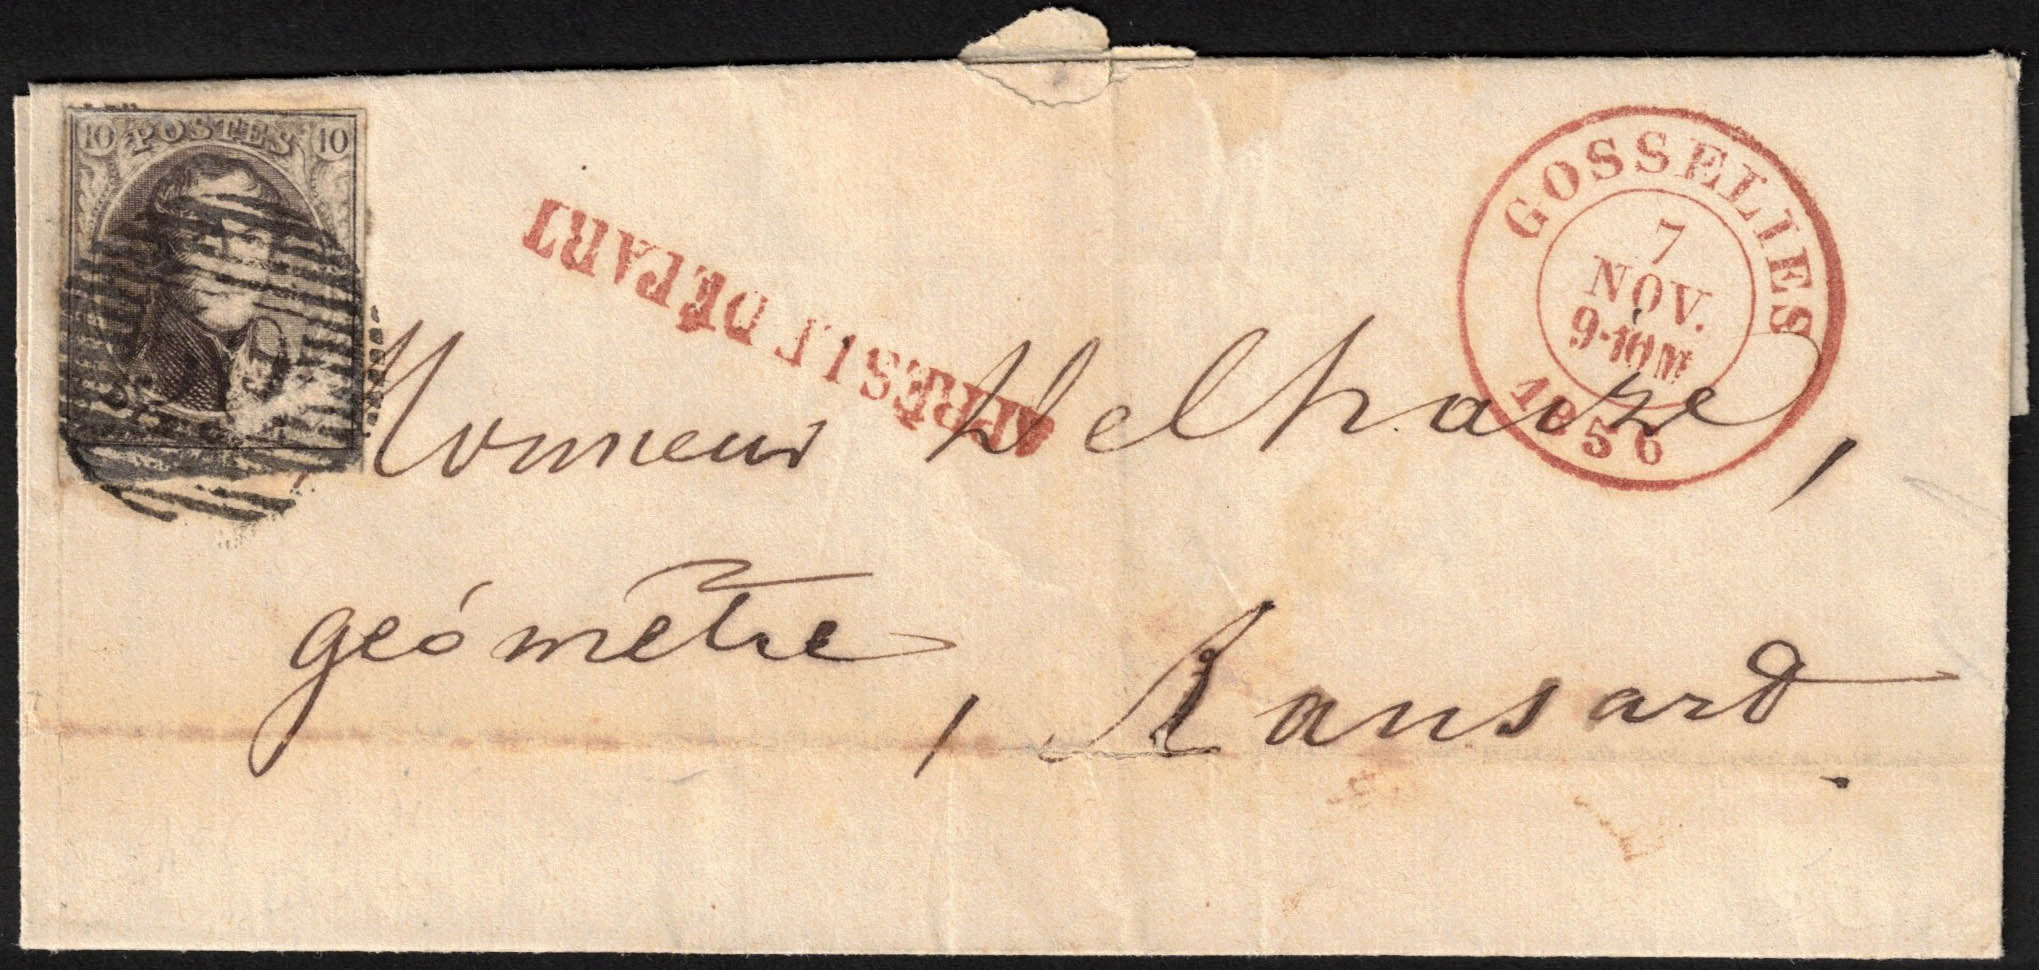 10 POSTES 10
APRES LE DÉPART
GOSSELIES
7
NOV.
9-10M
1856
Monsieur Delhaize,
géomètre,
Ransard.